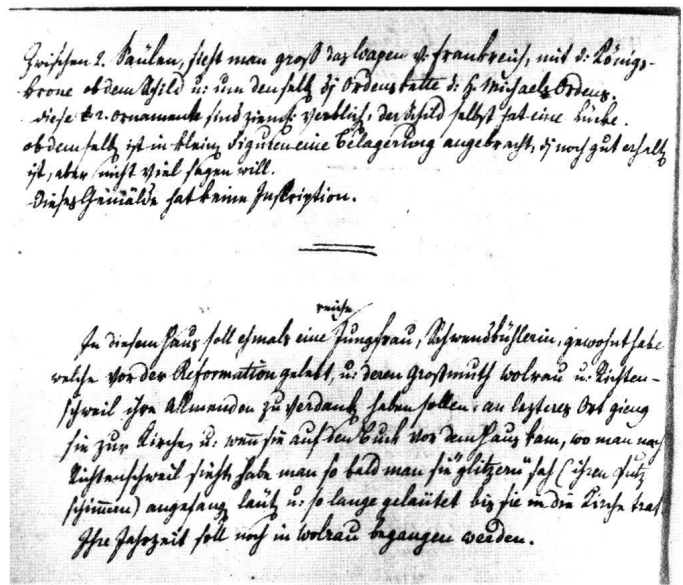 Zwischen 2. Säulen, sieht man groß das Wapen v: Frankreich, mit d: Königs-
krone ob dem Schild u: um denselb. dj Ordenskette d: H. Michaels Ordens.
diese 2. ornamente sind zieml: verblich, der Schild selbst hat eine Lücke.
ob demselb. ist in klein Figuren eine Belagerung angebracht, dj noch gut erhalt.
ist, aber nicht viel sagen will.
Dieses Gemälde hat keine Inscription.
reiche
In diesem Haus soll ehmals eine Jungfrau, Schwendbühlerin, gewohnt habe
welche vor der Reformation gelebt, u: deren Großmuth Wolrau u: Richten-
schweil ihre Allmenden zu verdank. haben sollen: an lezteres Ort gieng
sie zur Kirche, u: wenn sie auf den Buck vor dem Haus kam, wo man nach
Richtenschweil sieht, habe man so bald man sie glitzern sah (ihren Putz
schimmern) angefang. läut. u: so lange geläutet bis sie in die Kirche trat.
Ihre Jahrzeit soll noch in Wolrau begangen werden.